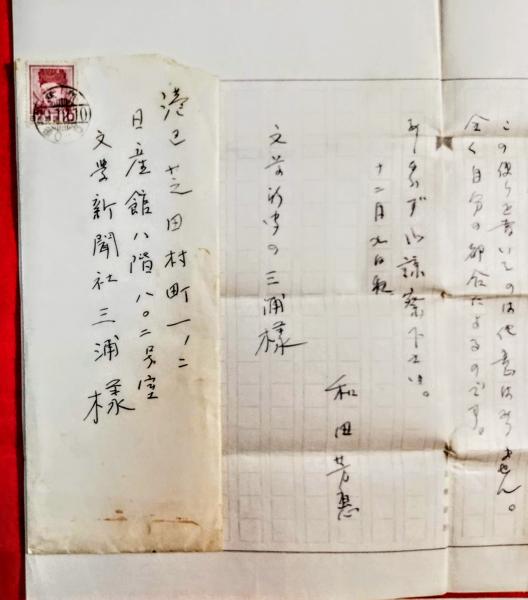 この便りを書いたのは他意はありません。
全く自分の都合によるのです。
あしからず御諒察下さい。
十二月九日夜
和田芳恵
文学新聞の三浦様
港区芝田村町一ノ二
日産館八階八〇二号室
文學新聞社 三浦様